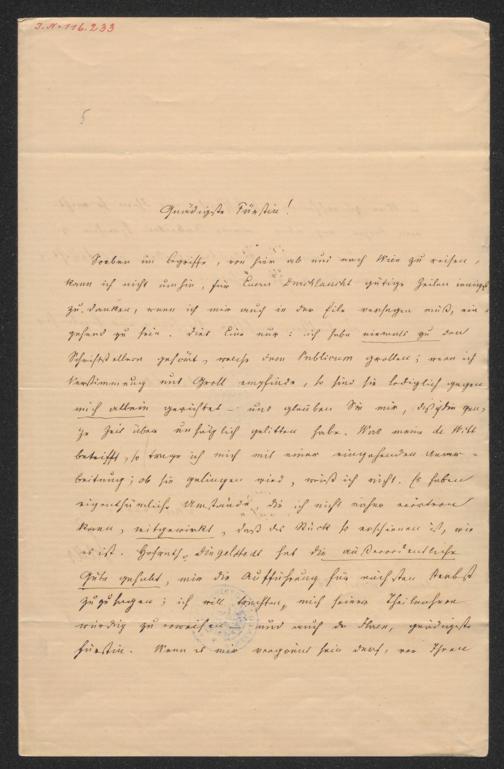 J.N. 116.233
5
Gnädigste Fürstin!
Soeben im Begriffe, von hier ab und nach Wien zu reisen,
kann ich nicht umhin, für Euer Durchlaucht gütige Zeilen innigst
zu danken, wenn ich mir auch in der Eile versagen muß, ein-
gehend zu sein. Dies Eine nur: ich habe niemals zu den
Schriftstellern gehört, welche dem Publicum grollen; wenn ich
Verstimmung und Groll empfinde, so sind sie lediglich gegen
mich allein gerichtet – und glauben Sie mir, daß ich die gan-
ze Zeit über unsäglich gelitten habe. Was meine de Witt
betrifft, so trage ich mich mit einer eingehenden Umar-
beitung; ob sie gelingen wird, weiß ich nicht. Es haben
eigenthümliche Umstände, die ich nicht näher erörtern
kann, mitgewirkt, daß das Stück so erschienen ist, wie
es ist. Hofrath Dingelstedt hat die außerordentliche
Güte gehabt, mir die Aufführung für nächsten Herbst
zuzusagen; ich will trachten, mich seiner Theilnahme
würdig zu erweisen – und auch der Ihren, gnädigste
Fürstin. Wenn es mir vergönnt sein darf, vor Ihren